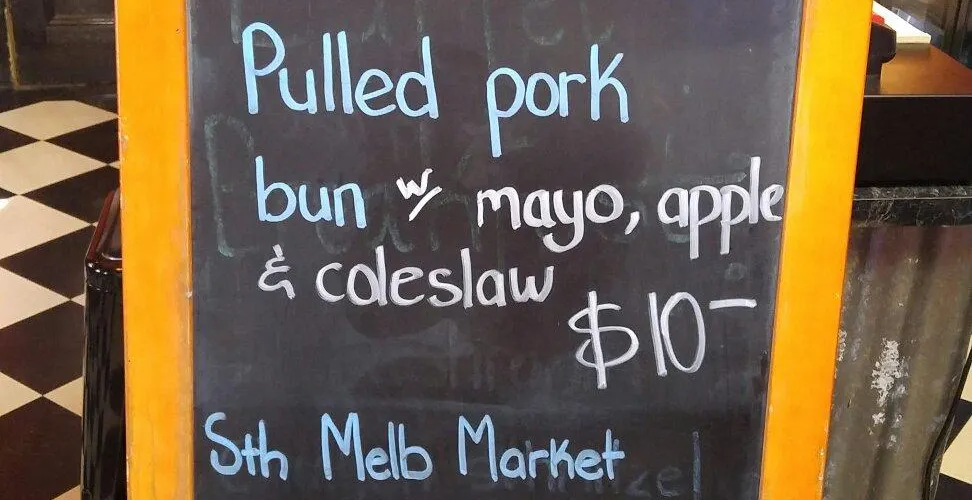 Pulled pork
bun w/ mayo, apple
& coleslaw
$10-
Sth Melb Market